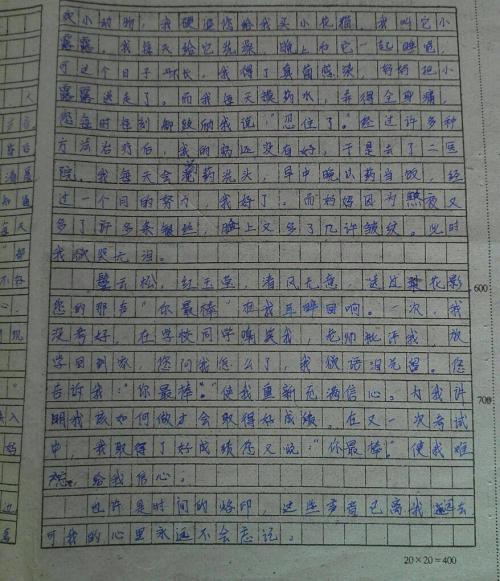 成小动物，我硬逼你给我买小花猫，我叫它小
露露，我每天给它洗澡，晚上和它一起睡觉，
可这个日子不长，我得了真菌感染，妈妈把小
露露送走了。而我每天擦药水，弄得全身痛，
您每时每刻都鼓励我说："忍住了。"经过许多种
方法治疗后，我的病还没有好，于是去了二医
院，我每天会药洗头，早中晚以药当饭，经
过一个月的努力，我好了。而妈妈因为熬夜又
多了许多条银丝，脸上又多了几许皱纹。此时
我欲哭无泪。
碧云松，红玉莹，清风无意，送过花影
您的那句"你最棒"在我耳畔回响。一次，我
没考好，在学校同学嘲笑我，老师批评我，放
学回到家，您问我怎么了，我欲语泪先留。您
告诉我："你最棒。"使我重新充满信心。为我讲
明我该如何做才会取得好成绩，在又一次考试
中，我取得了好成绩您又说："你最棒。"使我难
忘，给我信心；
也许是时间的烙印，这些声音已离我远去
可我的心里永远不会忘记。
600
700
20×20=400